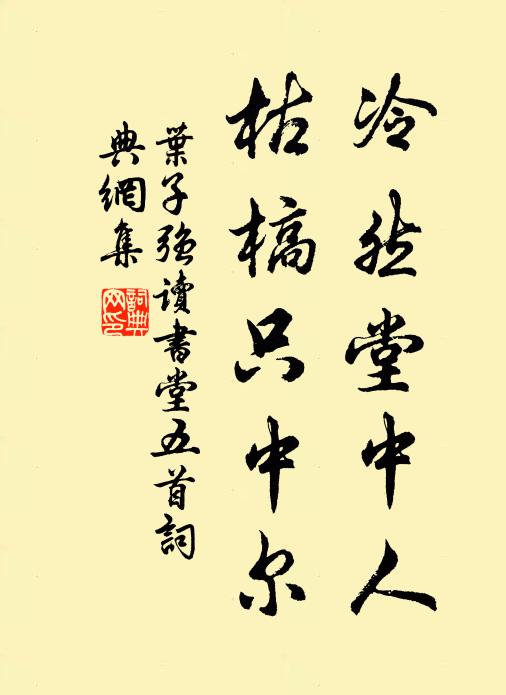 冷然堂中人
枯槁只中尔
葉子强讀書堂五首詞
典網集
詞典网印